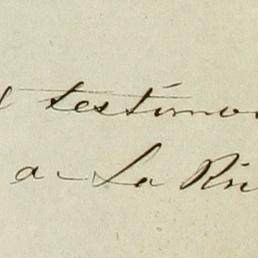 testimon
a La Ri